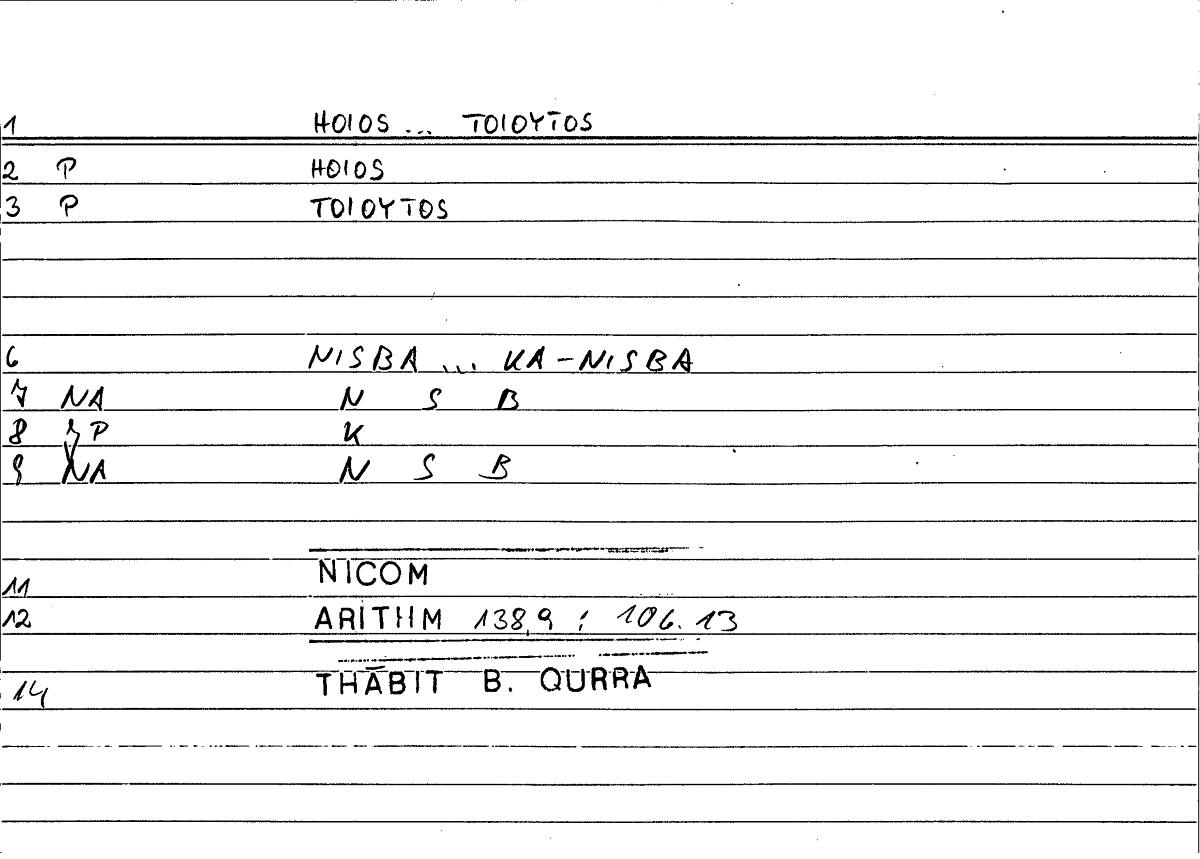 1 HOIOS ... TOIOYTOS
2 P HOIOS
3 P TOIOYTOS
6 NISBA ... KA-NISBA
7 NA N S B
8 P K
9 NA N S B
11 NICOM
12 ARITHM 138,9 : 106.13
14 THĀBIT B. QURRA